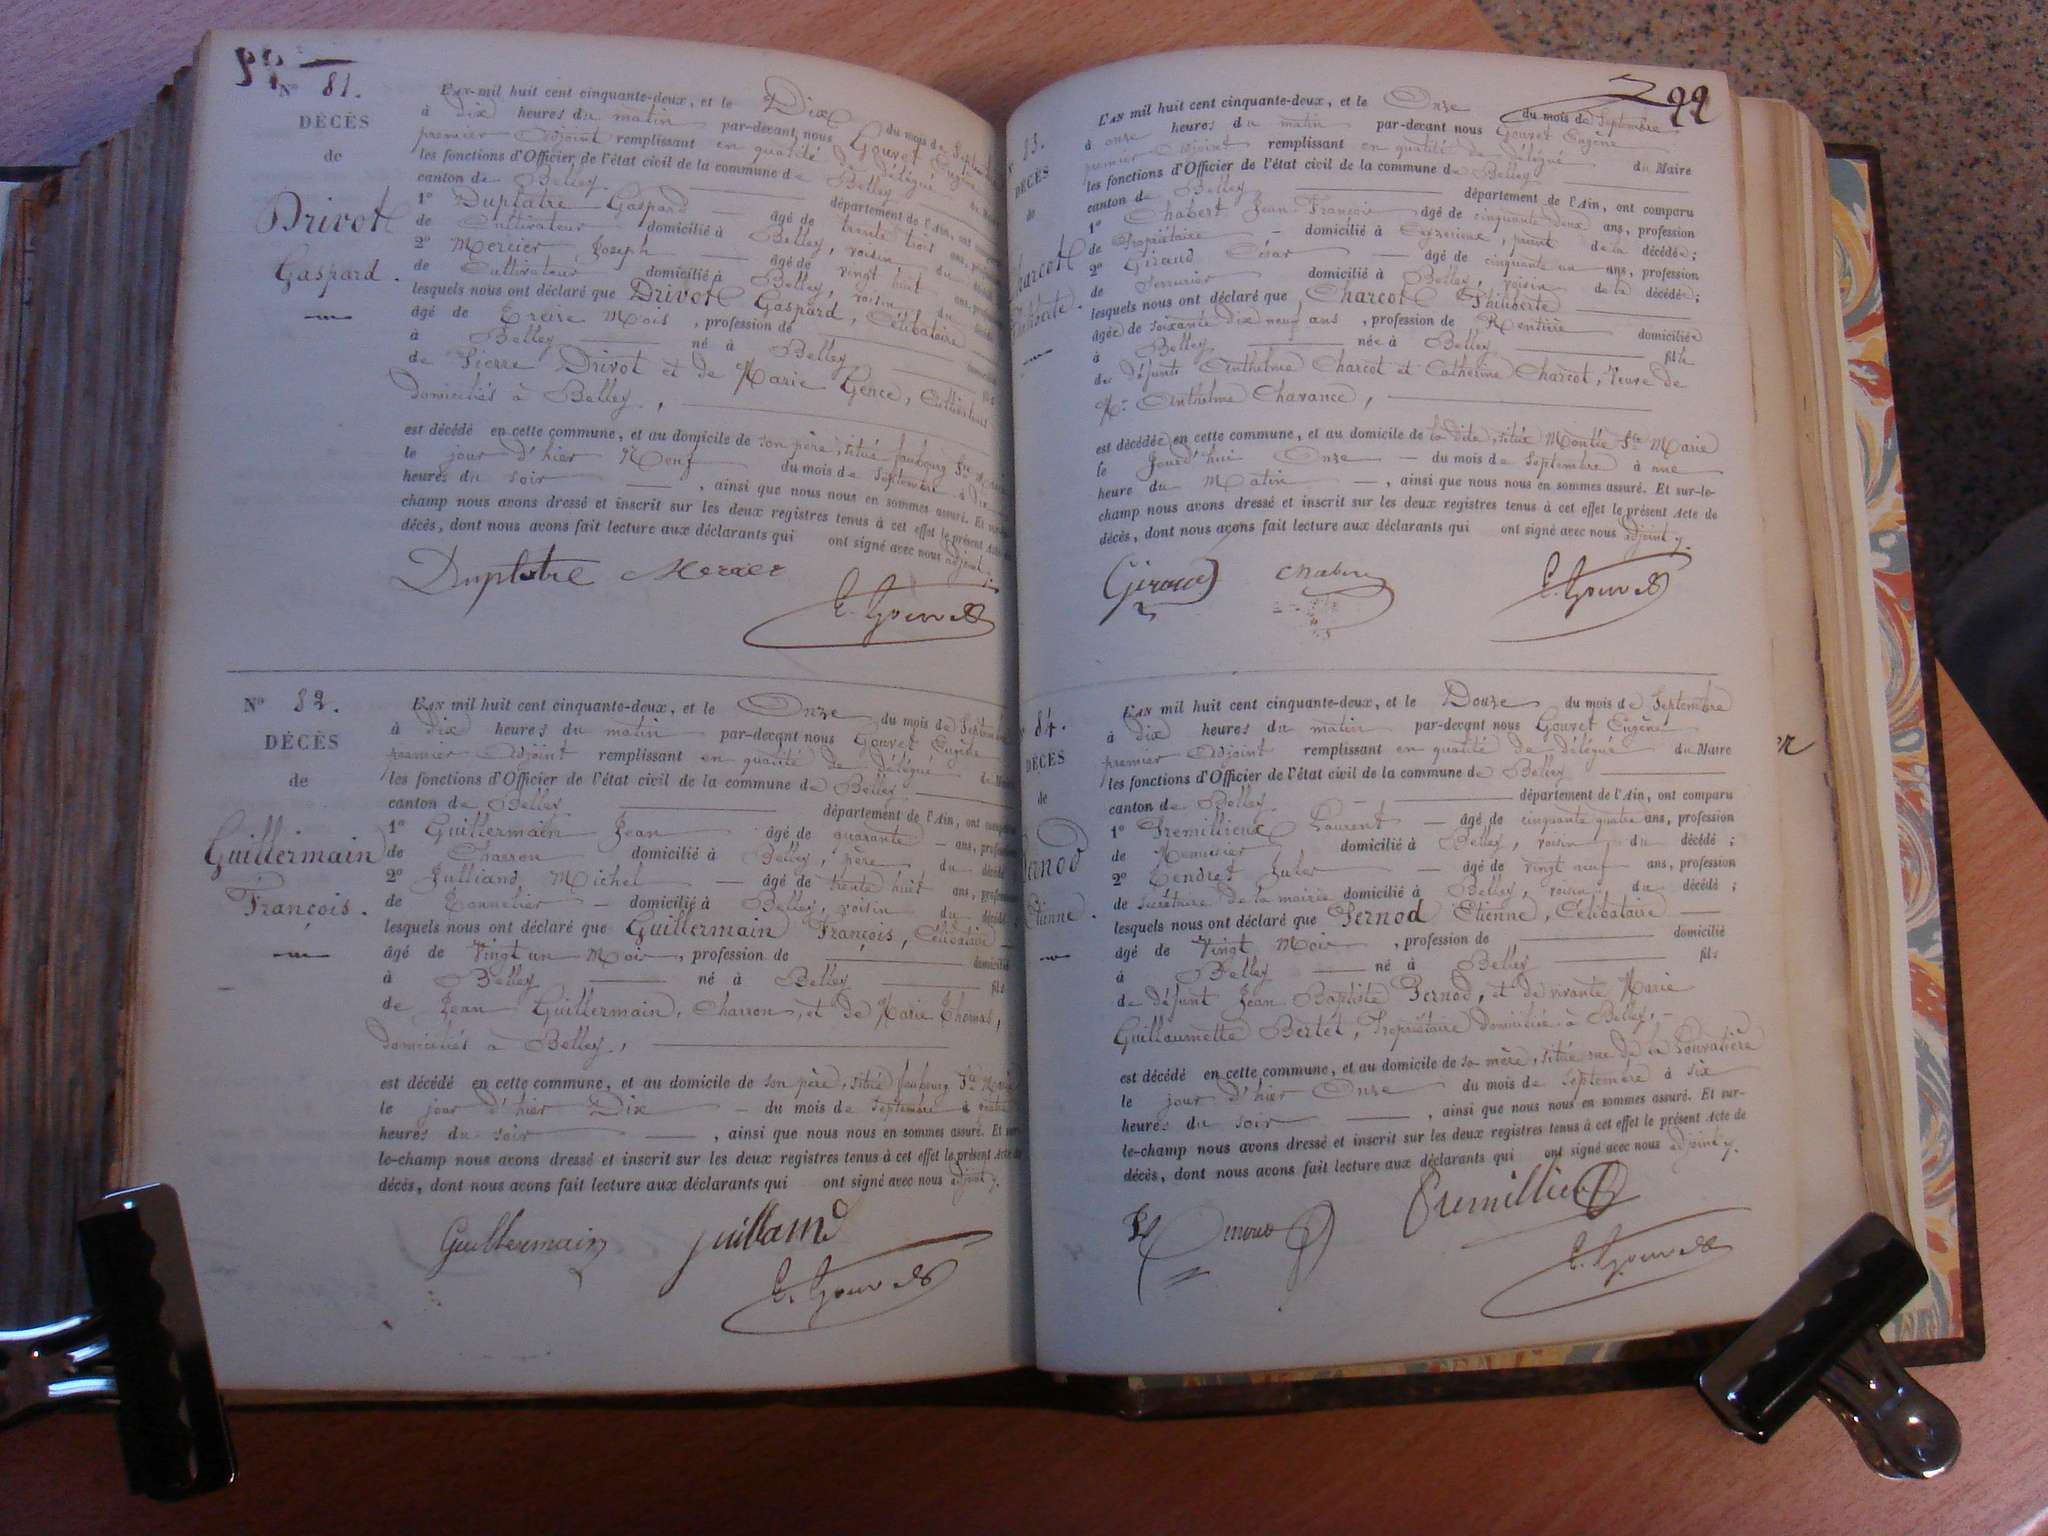 N° 81.
DÉCÈS
de
Drivot
Gaspard.
L'AN mil huit cent cinquante-deux, et le Dix du mois de Septembre
à dix heures du matin par-devant nous Gouvet Eugène
premier Adjoint remplissant en qualité de délégué du Maire
les fonctions d'Officier de l'état civil de la commune de Belley
canton de Belley département de l'Ain, ont comparu
1° Duplatre Gaspard âgé de trente trois ans, profession
de Cultivateur domicilié à Belley, voisin du décédé
2° Mercier Joseph âgé de vingt huit ans, profession
de Cultivateur domicilié à Belley, voisin du décédé
lesquels nous ont déclaré que Drivot Gaspard, Célibataire
âgé de Treize Mois, profession de domicilié
à Belley né à Belley fils
de Pierre Drivot et de Marie Gence, Cultivateurs
domiciliés à Belley,
est décédé en cette commune, et au domicile de son père, situé faubourg Ste Marie
le jour d'hier Neuf du mois de Septembre à
heures du soir, ainsi que nous nous en sommes assuré. Et sur-le-
champ nous avons dressé et inscrit sur les deux registres tenus à cet effet le présent Acte de
décès, dont nous avons fait lecture aux déclarants qui ont signé avec nous adjoint
Duplatre Mercier
E. Gouvet
N° 82.
DÉCÈS
de
Guillermain
François.
L'AN mil huit cent cinquante-deux, et le Onze du mois de Septembre
à dix heures du matin par-devant nous Gouvet Eugène
premier Adjoint remplissant en qualité de délégué du Maire
les fonctions d'Officier de l'état civil de la commune de Belley
canton de Belley département de l'Ain, ont comparu
1° Guillermain Jean âgé de quarante ans, profession
de Charron domicilié à Belley, père du décédé
2° Julliand Michel âgé de trente huit ans, profession
de Tonnelier domicilié à Belley, voisin du décédé
lesquels nous ont déclaré que Guillermain François, Célibataire
âgé de Vingt un Mois, profession de domicilié
à Belley né à Belley fils
de Jean Guillermain, Charron, et de Marie Thomas,
domiciliés à Belley,
est décédé en cette commune, et au domicile de son père, situé faubourg Ste Marie
le jour d'hier Dix du mois de Septembre à
heures du soir, ainsi que nous nous en sommes assuré. Et sur-
le-champ nous avons dressé et inscrit sur les deux registres tenus à cet effet le présent Acte de
décès, dont nous avons fait lecture aux déclarants qui ont signé avec nous adjoint
Guillermain Juilland
E. Gouvet
99
DÉCÈS
de
Charcot
L'AN mil huit cent cinquante-deux, et le Onze du mois de Septembre
à onze heures du matin par-devant nous Gouvet Eugène
premier Adjoint remplissant en qualité de délégué du Maire
les fonctions d'Officier de l'état civil de la commune de Belley
canton de Belley département de l'Ain, ont comparu
1° Chabert Jean François âgé de cinquante deux ans, profession
de Propriétaire domicilié à Ceyzerieux, parent de la décédée;
2° Giraud César âgé de cinquante un ans, profession
de Serrurier domicilié à Belley, voisin de la décédée;
lesquels nous ont déclaré que Charcot Philiberte
âgée de soixante dix neuf ans, profession de Rentière domiciliée
à Belley née à Belley fille
de défunts Anthelme Charcot et Catherine Charcot, Veuve de
Mr Anthelme Chavance,
est décédée en cette commune, et au domicile de la dite, situé Montée Ste Marie
le Jourd'hui Onze du mois de Septembre à une
heure du Matin, ainsi que nous nous en sommes assuré. Et sur-le-
champ nous avons dressé et inscrit sur les deux registres tenus à cet effet le présent Acte de
décès, dont nous avons fait lecture aux déclarants qui ont signé avec nous adjoint
Giraud Chabert E. Gouvet
84.
DÉCÈS
de
Pernod
Etienne.
L'AN mil huit cent cinquante-deux, et le Douze du mois de Septembre
à dix heures du matin par-devant nous Gouvet Eugène
premier Adjoint remplissant en qualité de délégué du Maire
les fonctions d'Officier de l'état civil de la commune de Belley
canton de Belley département de l'Ain, ont comparu
1° Tremillieux Laurent âgé de cinquante quatre ans, profession
de Menuisier domicilié à Belley, voisin du décédé;
2° Tendret Jules âgé de vingt neuf ans, profession
de secrétaire de la mairie domicilié à Belley, voisin, du décédé;
lesquels nous ont déclaré que Pernod Etienne, Célibataire
âgé de Vingt Mois, profession de domicilié
à Belley né à Belley fils
de défunt Jean Baptiste Pernod, et de vivante Marie
Guillaumette Bertet, Propriétaire domiciliée à Belley,
est décédé en cette commune, et au domicile de sa mère, situé rue de la
le jour d'hier Onze du mois de Septembre à six
heures du soir, ainsi que nous nous en sommes assuré. Et sur-
le-champ nous avons dressé et inscrit sur les deux registres tenus à cet effet le présent Acte de
décès, dont nous avons fait lecture aux déclarants qui ont signé avec nous adjoint
Tremillieux
E. Gouvet